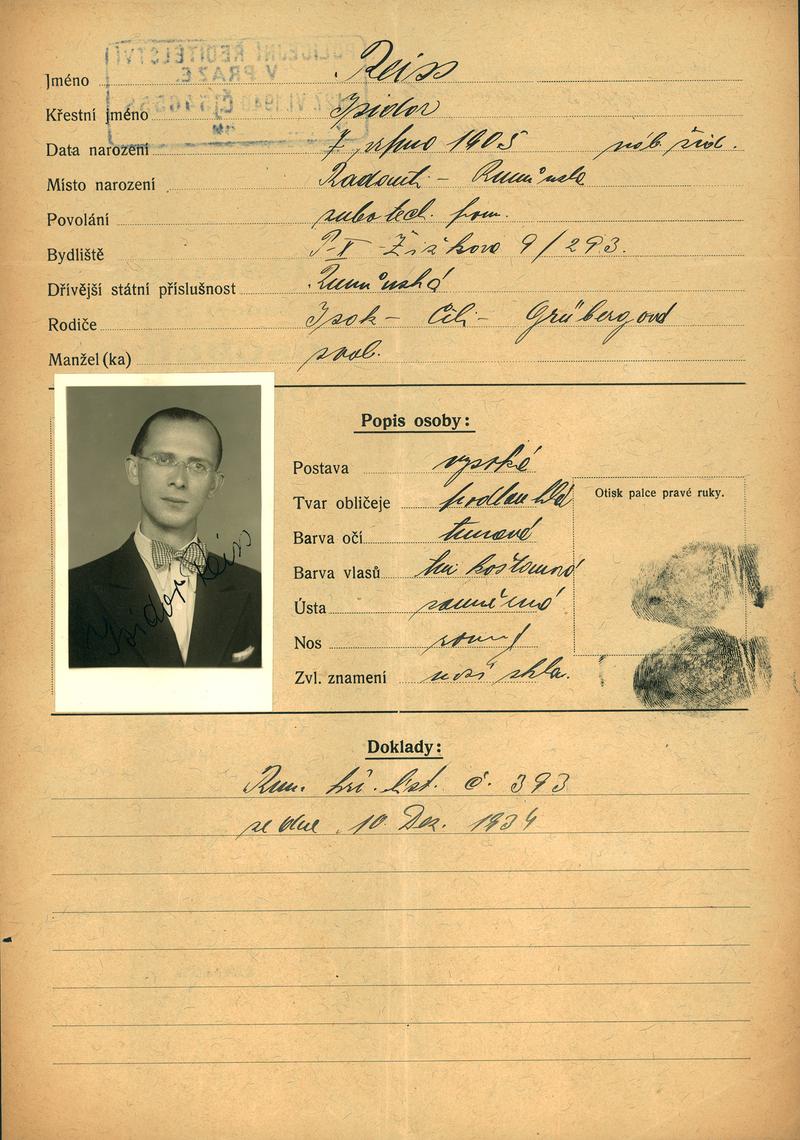 POLICEJNÍ ŘEDITELSTVÍ
V PRAZE
Jméno Reiss
Křestní jméno Isidor
Data narození 7. srpna 1905 náb. žid.
Místo narození Radouti - Rumunsko
Povolání zubo tech. pom.
Bydliště P-X Žižkova 9/293.
Dřívější státní příslušnost Rumunská
Rodiče Isak - Cili - Grübergová
Manžel(ka) svob.
Popis osoby:
Postava vysoká
Tvar obličeje podlouhlá
Barva očí tmavé
Barva vlasů tm. kaštanová
Ústa souměrná
Nos rovný
Zvl. znamení nosí skla.
Otisk palce pravé ruky.
Isidor Reiss
Doklady:
Rum. list. č. 393
ze dne 10. Dez. 1934